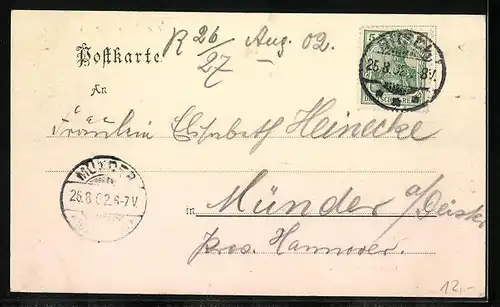 R 26/27 Aug. 02.
Postkarte
5
25.8.02. 8-V.
DEUTSCHES REICH
An
Fräulein Elisabeth Heinecke
MÜNDER
26.8.02.6-7V
in Münder a/Deister
Prov. Hannover.
12.-